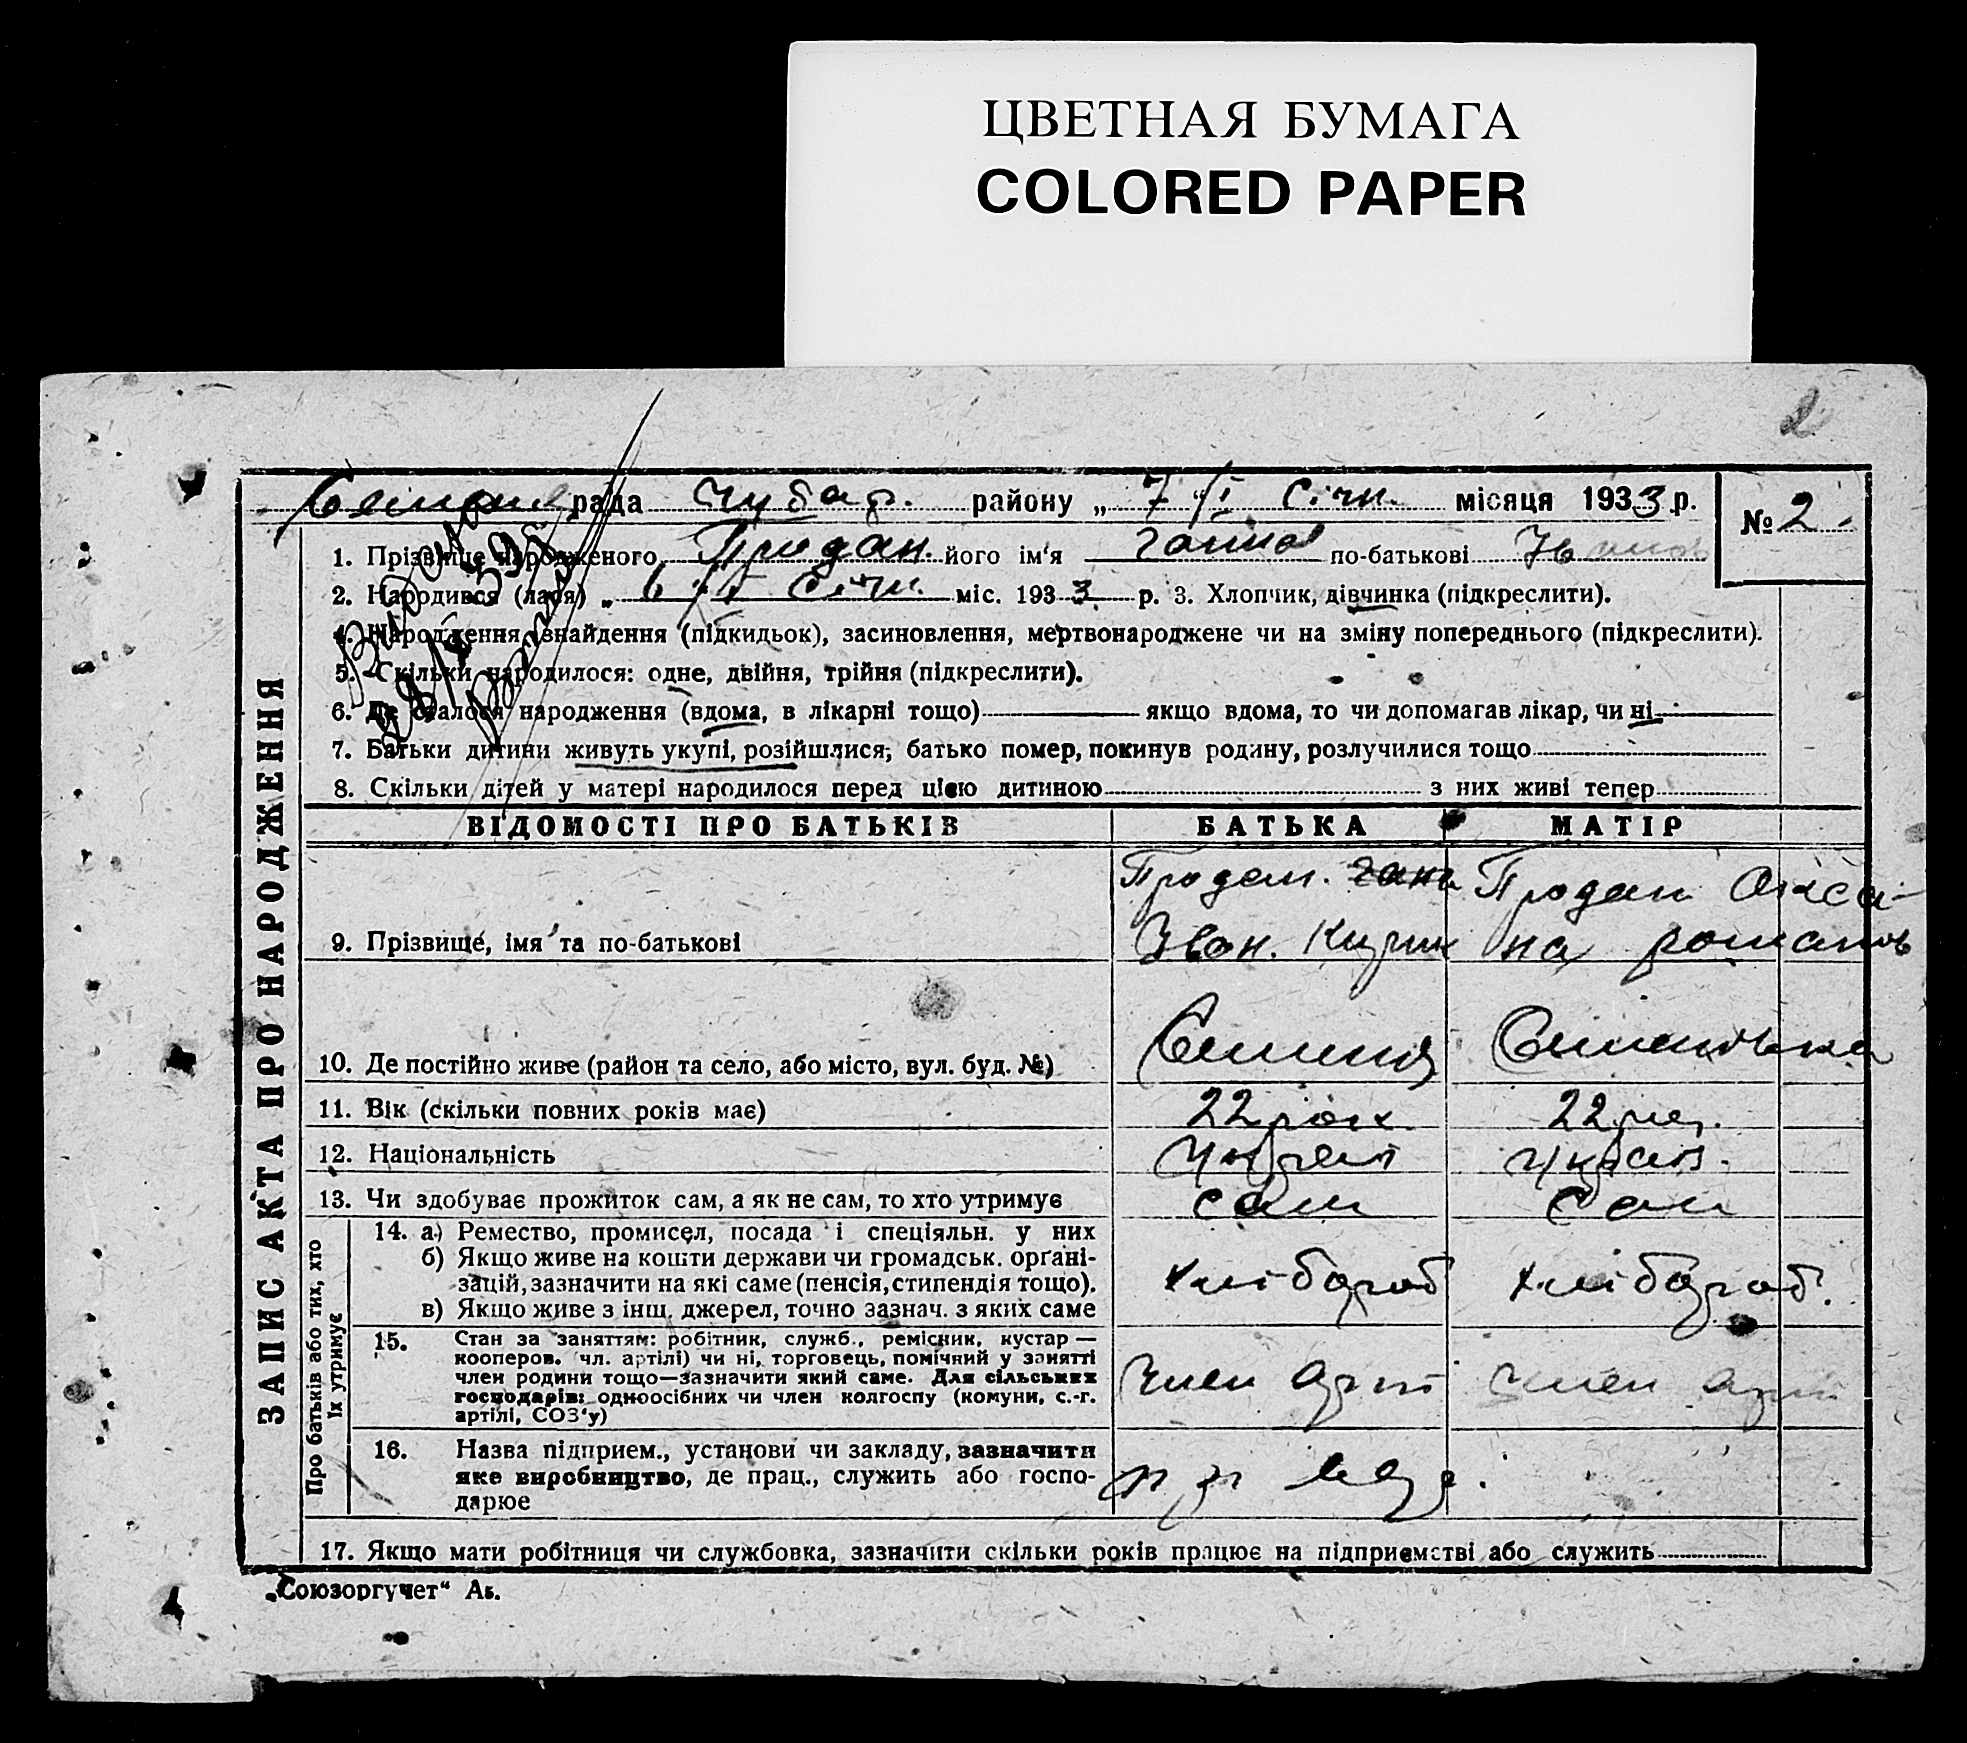 ЦВЕТНАЯ БУМАГА
COLORED PAPER
2
рада Чубар. району „ 7 “ /I Січн. місяця 1933 р.
№ 2.
1. Прізвище народженого Продан. його ім'я по-батькові
2. Народився (лася) „ 6 /I Січн. міс. 1933 р. 3. Хлопчик, дівчинка (підкреслити).
4. Народження, знайдення (підкидьок), засиновлення, мертвонароджене чи на зміну попереднього (підкреслити).
5. Скільки народилося: одне, двійня, трійня (підкреслити).
6. Де сталося народження (вдома, в лікарні тощо) якщо вдома, то чи допомагав лікар, чи ні
7. Батьки дитини живуть укупі, розійшлися, батько помер, покинув родину, розлучилися тощо
8. Скільки дітей у матері народилося перед цією дитиною з них живі тепер
ВІДОМОСТІ ПРО БАТЬКІВ БАТЬКА МАТІР
Продан. Продан Окса-
9. Прізвище, імя та по-батькові Іван. Кирил на Романов
10. Де постійно живе (район та село, або місто, вул. буд. №)
11. Вік (скільки повних років має) 22 рок. 22 р.
12. Національність Украї Украї.
13. Чи здобуває прожиток сам, а як не сам, то хто утримує сам сам
14. а) Ремество, промисел, посада і спеціяльн. у них
б) Якщо живе на кошти держави чи громадськ. орґані-
зацій, зазначити на які саме (пенсія, стипендія тощо).
хлібороб хлібороб.
в) Якщо живе з інш. джерел, точно зазнач. з яких саме
15. Стан за заняттям: робітник, служб., ремісник, кустар —
кооперов. чл. артілі) чи ні, торговець, помічний у занятті
член родини тощо—зазначити який саме. Для сільських
член арт член арт
господарів: одноосібних чи член колгоспу (комуни, с.-г.
артілі, СОЗ'у)
16. Назва підприєм., установи чи закладу, зазначити
яке виробництво, де прац., служить або госпо-
дарює
17. Якщо мати робітниця чи службовка, зазначити скільки років працює на підприємстві або служить
ЗАПИС АКТА ПРО НАРОДЖЕННЯ
Про батьків або тих, хто
їх утримує
„Союзоргучет“ Аь.